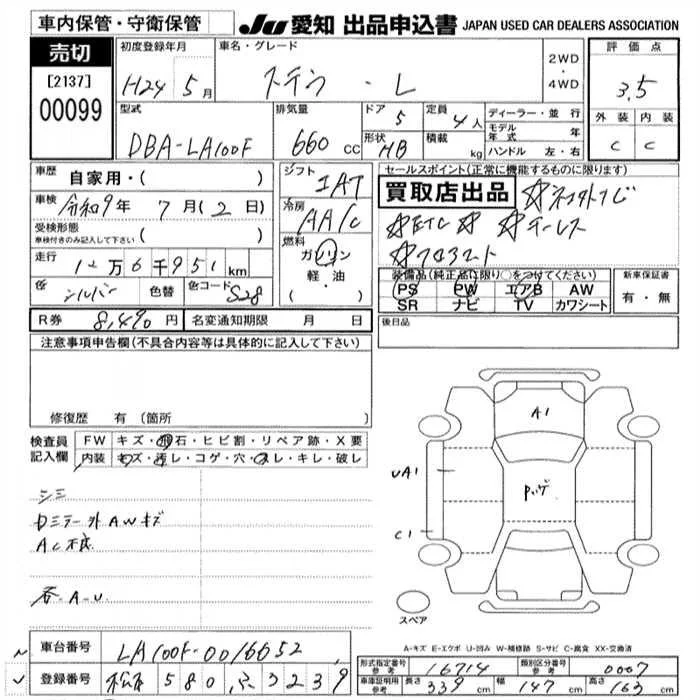 車内保管・守衛保管 JU 愛知 出品申込書 JAPAN USED CAR DEALERS ASSOCIATION
売切
[2137]
00099
初度登録年月 H24 5月
車名・グレード ステラ - L
2WD・4WD
評価点 3.5
型式 DBA-LA100F
排気量 660 cc
ドア 5
形状 HB
定員 4人
積載 kg
ディーラー・並行
モデル年式 年
ハンドル 左・右
外装 C
内装 C
車歴 自家用・( )
車検 令和9年 7月(2日)
受検形態 ( )
車検付きのみ記入して下さい
走行 12万6千951km
色 シルバー 色替 色コード S28
シフト IAT
冷房 AA/C
燃料 ガソリン
軽・油
・( )
R券 8,490円 名変通知期限 月 日
セールスポイント(正常に機能するものに限ります)
買取店出品
ETC
装備品(純正品に限り○をつけてください)
PS PW エアB AW
SR ナビ TV カワシート
新車保証書
有・無
後日品
注意事項申告欄(不具合内容等は具体的に記入して下さい)
修復歴 有(箇所
検査員記入欄
FW キズ・飛石・ヒビ割・リペア跡・X要
内装 キズ・汚レ・コゲ・穴・スレ・キレ・破レ
シミ
Dミラー外AWキズ
AC不良
A-U
A1
UA1
C1
スペア
A-キズ E-エクボ U-凹み W-補修跡 S-サビ C-腐食 XX-交換済
車台番号 LA100F-0016652
登録番号 松本 580 ふ 3239
形式指定番号 参考 16714
類別区分番号 参考 0007
車庫証明用 参考 長さ 339 cm 幅 147 cm 高さ 163 cm